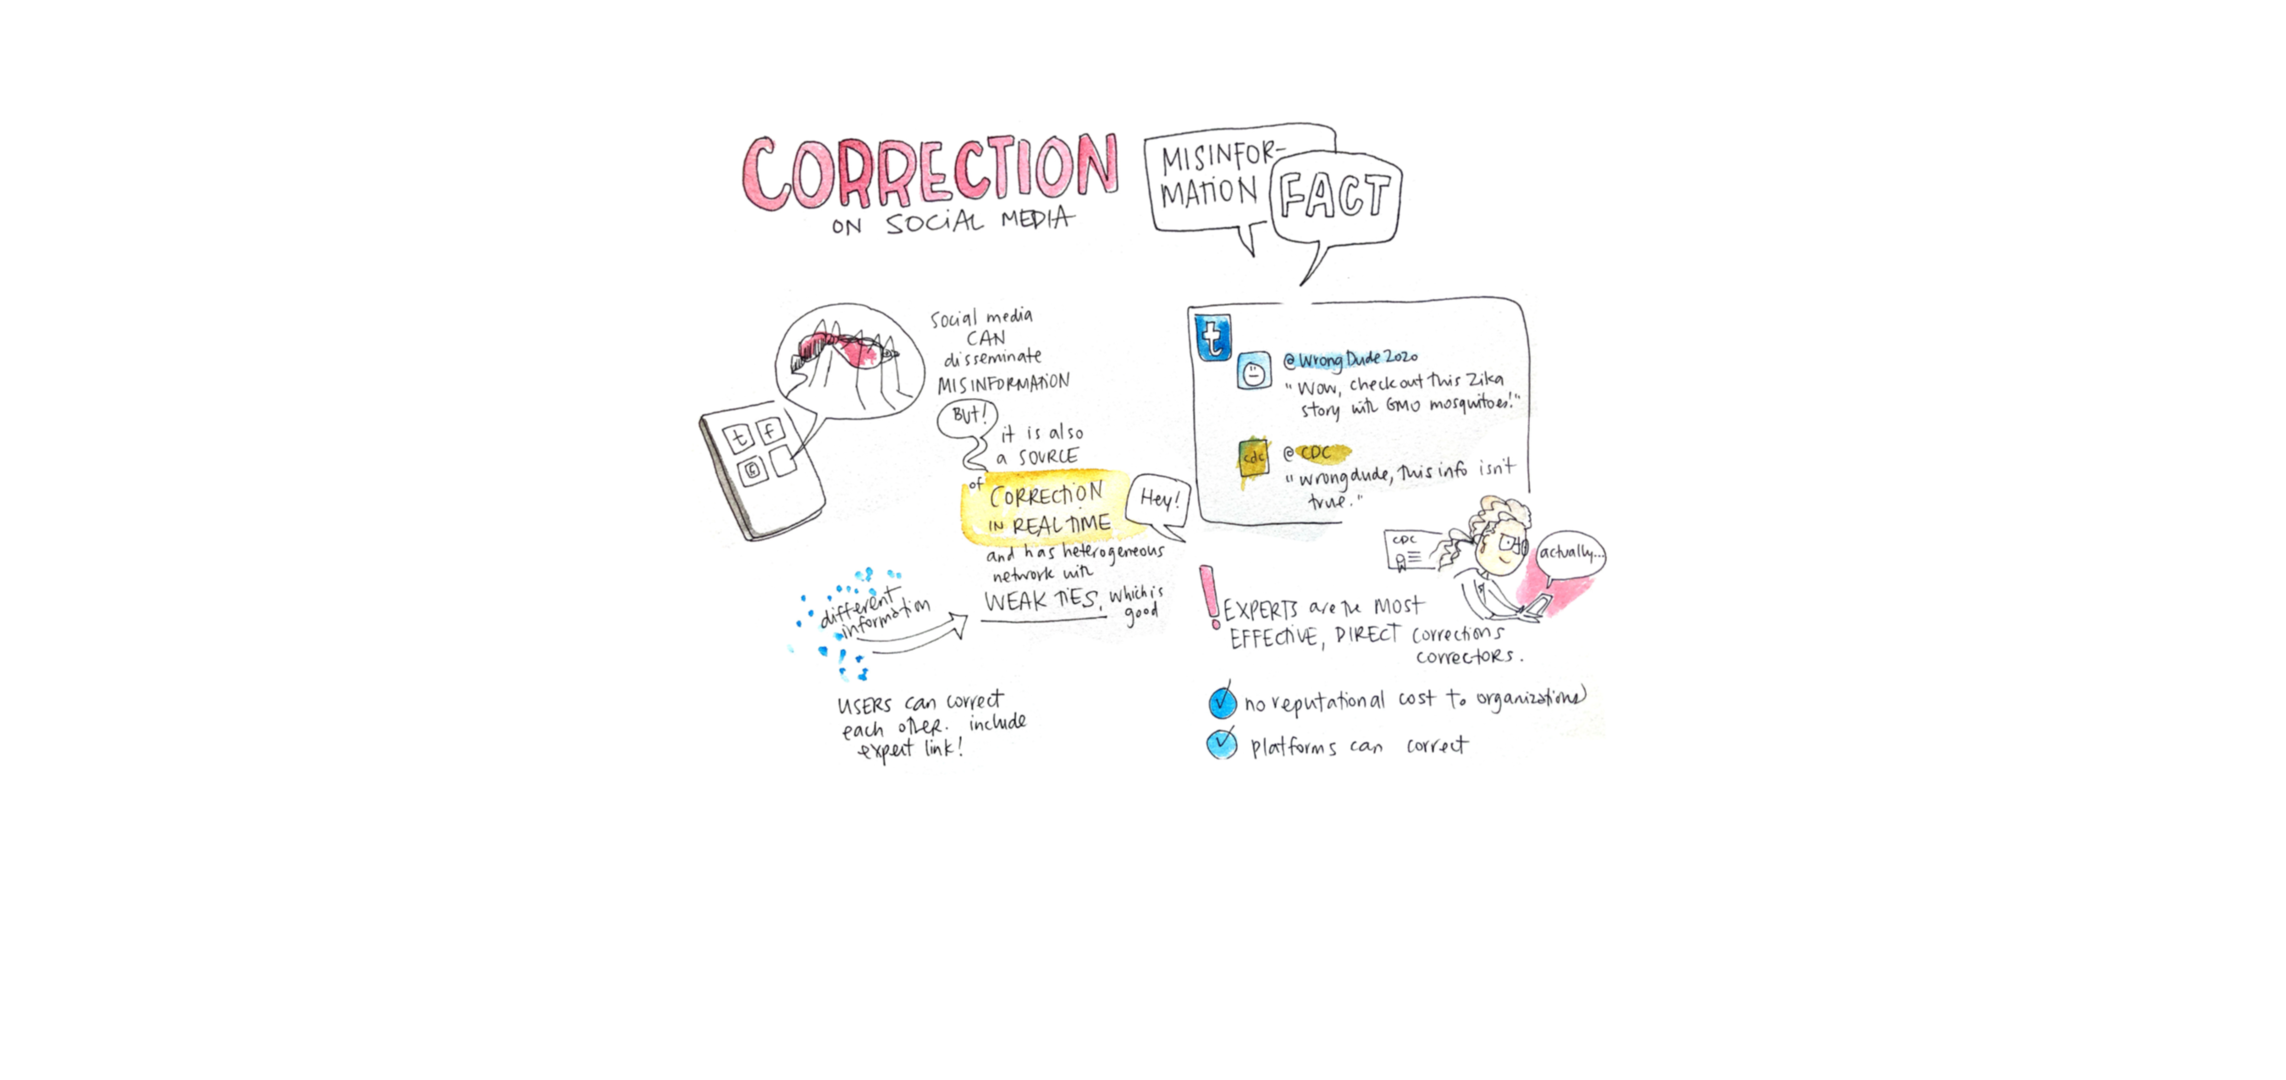 CORRECTION
ON SOCIAL MEDIA
MISINFOR-
MATION
FACT
Social media
CAN
disseminate
MISINFORMATION
BUT!
it is also
a SOURCE
of
CORRECTION
IN REAL TIME
Hey!
and has heterogeneous
network with
WEAK TIES, which is
good
t f
different
information
USERS can correct
each other. include
expert link!
t
@WrongDude2020
"Wow, check out this Zika
story with GMO mosquitoes!"
cdc
@CDC
"wrongdude, this info isn't
true."
CDC
actually...
! EXPERTS are the MOST
EFFECTIVE, DIRECT corrections
correctors.
no reputational cost to organizations
platforms can correct